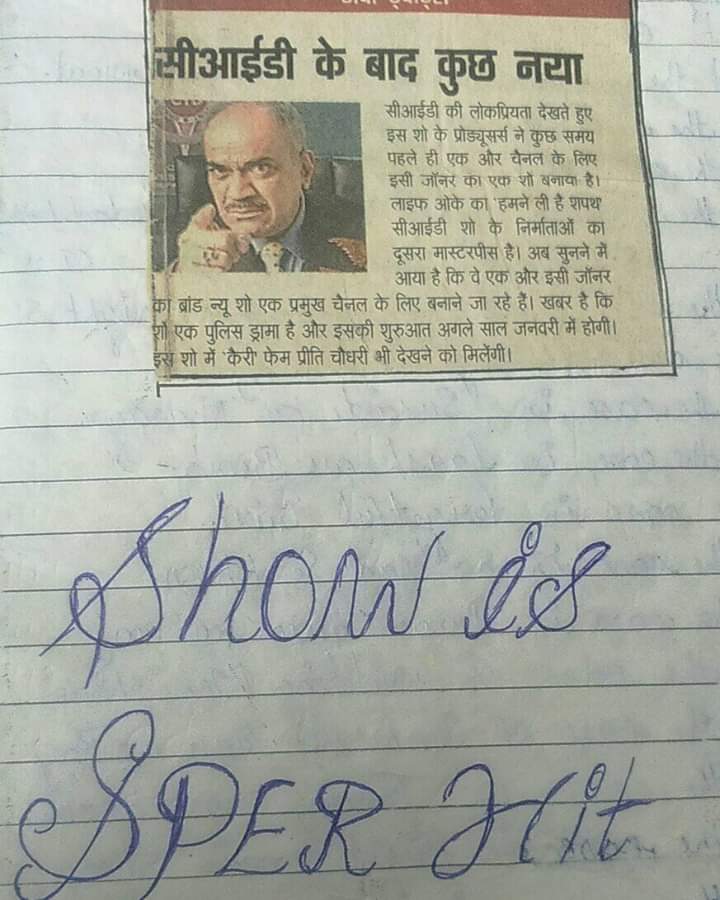 सीआईडी के बाद कुछ नया
सीआईडी की लोकप्रियता देखते हुए
इस शो के प्रोड्यूसर्स ने कुछ समय
पहले ही एक और चैनल के लिए
इसी जॉनर का एक शो बनाया है।
लाइफ ओके का 'हमने ली है शपथ'
सीआईडी शो के निर्माताओं का
दूसरा मास्टरपीस है। अब सुनने में
आया है कि वे एक और इसी जॉनर
का ब्रांड न्यू शो एक प्रमुख चैनल के लिए बनाने जा रहे हैं। खबर है कि
शो एक पुलिस ड्रामा है और इसकी शुरुआत अगले साल जनवरी में होगी।
इस शो में 'कैरी' फेम प्रीति चौधरी भी देखने को मिलेंगी।
Show is
SPER Hit